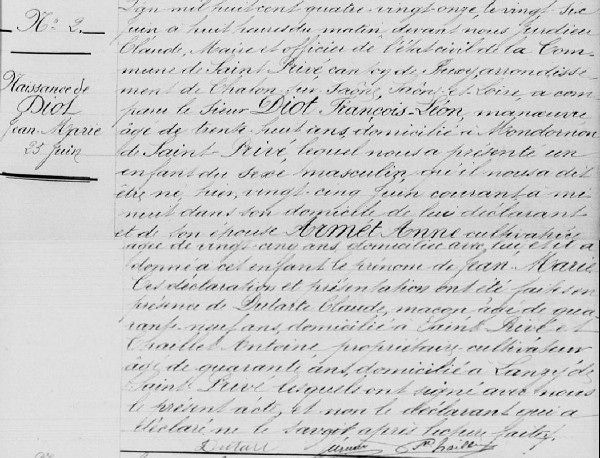 N° 2.
Naissance de
Diot
Jean Marie
25 Juin
L'an mil huit cent quatre-vingt onze, le vingt-six
juin à huit heures du matin, devant nous
Claude, Maire et officier de l'état civil de la Com
mune de Saint Privé, canton de Buxy, arrondisse
ment de Chalon sur Saône, Saône et Loire, a com
paru le sieur Diot François-Léon, manœuvre
âgé de trente huit ans, domicilié à
de Saint-Privé, lequel nous a présenté un
enfant du sexe masculin, qu'il nous a dit
être né, hier, vingt-cinq juin courant à mi
nuit dans son domicile de lui déclarant
et de son épouse Armet Anne cultivatrice
âgée de vingt-cinq ans, domiciliée avec lui et il a
donné à cet enfant le prénom de Jean-Marie
Ces déclaration et présentation ont été faites en
présence de Dutarte Claude, maçon, âgé de qua
rante neuf ans, domicilié à Saint Privé et
Chaillet Antoine propriétaire cultivateur
âgé de quarante ans, domicilié à
Saint Privé lesquels ont signé avec nous
le présent acte, et non le déclarant qui a
déclaré ne le savoir après lecture faite.